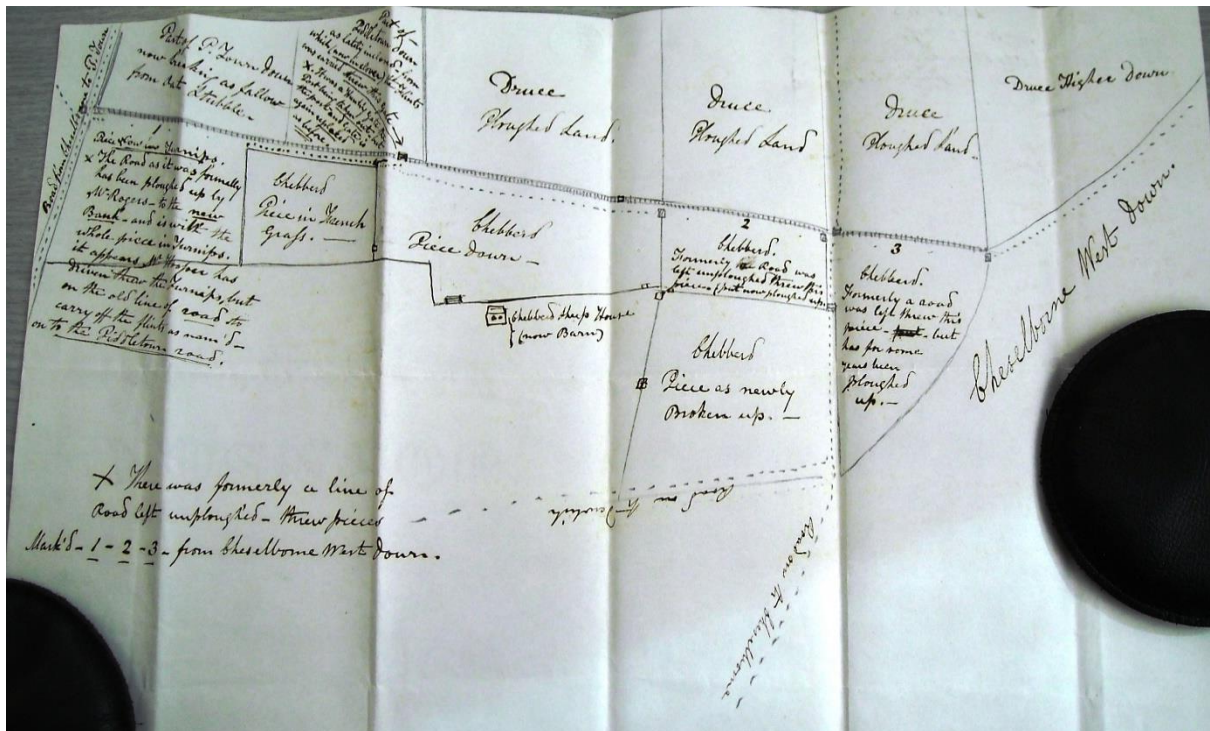 Road from Chesleborne to P. Town
Part of P. Town Down
now breaking as fallow
from Oat Stubble.
Part of
Piddletown Down
as lately inclosed from
which
was
again
as before
Druce
Ploughed Land.
Druce
Ploughed Land
Druce
Ploughed Land.
Druce Higher Down.
1
Piece Now in Turnips.
X The Road as it was formally
has been ploughed up by
Mr Rogers - to the new
Bank - and is with the
whole piece in Turnips.
it appears Mr Hooper has
driven threw the Turnips, but
on the old line of road to
carry off the flints as nam'd -
on to the Piddletown road.
Chebberd
Piece in French
Grass. -
Chebberd
Piece Down -
2
Chebberd.
Formerly the Road was
left unploughed threw this
piece (but now ploughed up)
3
Chebberd.
Formerly a road
was left threw this
piece - but
has for some
years been
ploughed
up. -
Cheselborne West Down.
Chebberd Sheep House
(now Barn)
Chebberd
Piece as newly
Broken up. -
X There was formerly a line of
Road left unploughed - threw pieces
Mark'd - 1 - 2 - 3 - from Cheselborne West Down.
Road on to Dewlish
Road on to Cheselborne